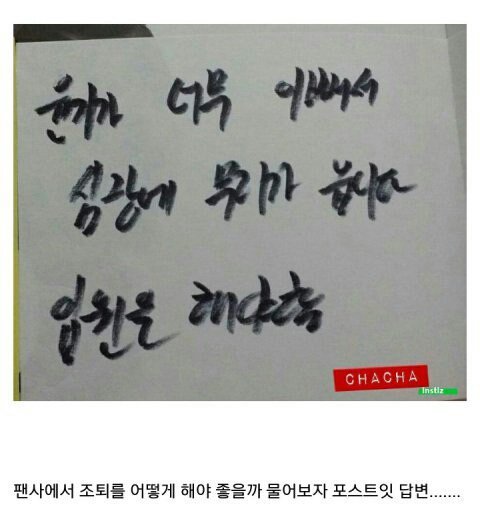 윤기가 너무 이뻐서
심장에 무리가 옵니다
입원을
CHACHA
instiz
팬사에서 조퇴를 어떻게 해야 좋을까 물어보자 포스트잇 답변.......